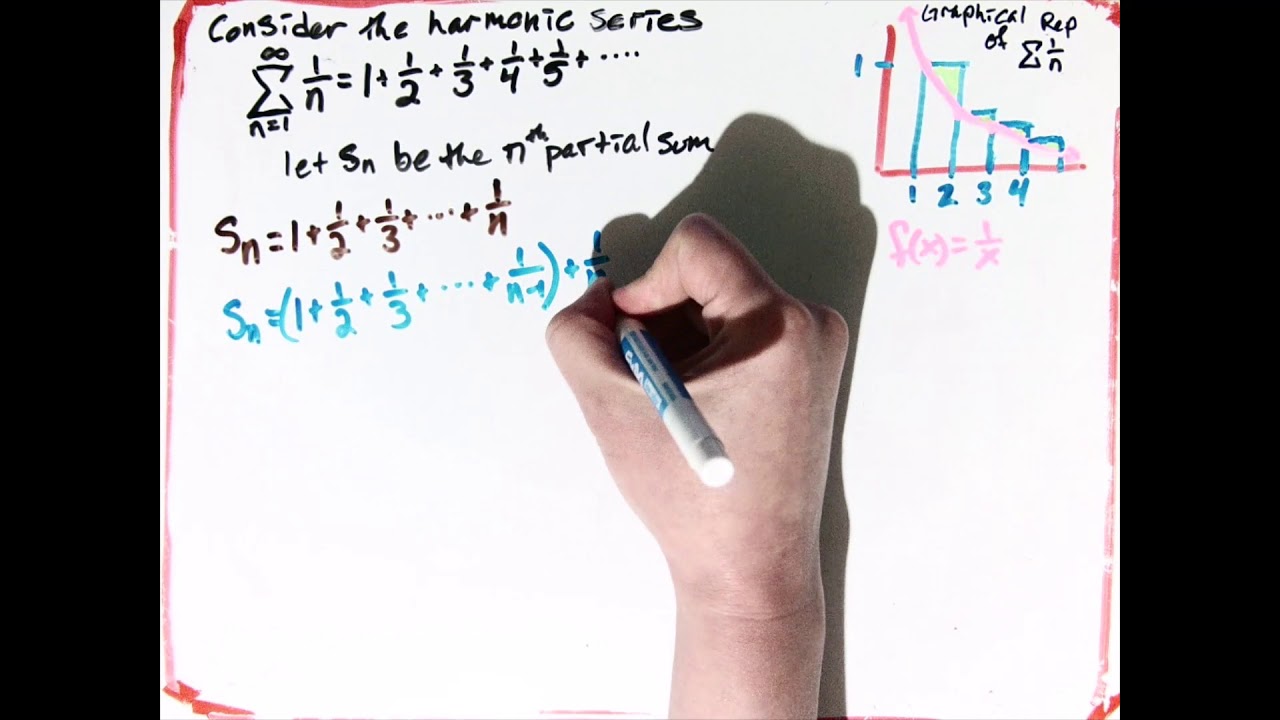 Consider the harmonic series
∞
∑ 1/n = 1 + 1/2 + 1/3 + 1/4 + 1/5 + ....
n=1
let Sn be the nth partial sum
Sn = 1 + 1/2 + 1/3 + ... + 1/n
Sn = (1 + 1/2 + 1/3 + ... + 1/n-1) + 1/
Graphical Rep
of ∑ 1/n
1
1 2 3 4
f(x) = 1/x